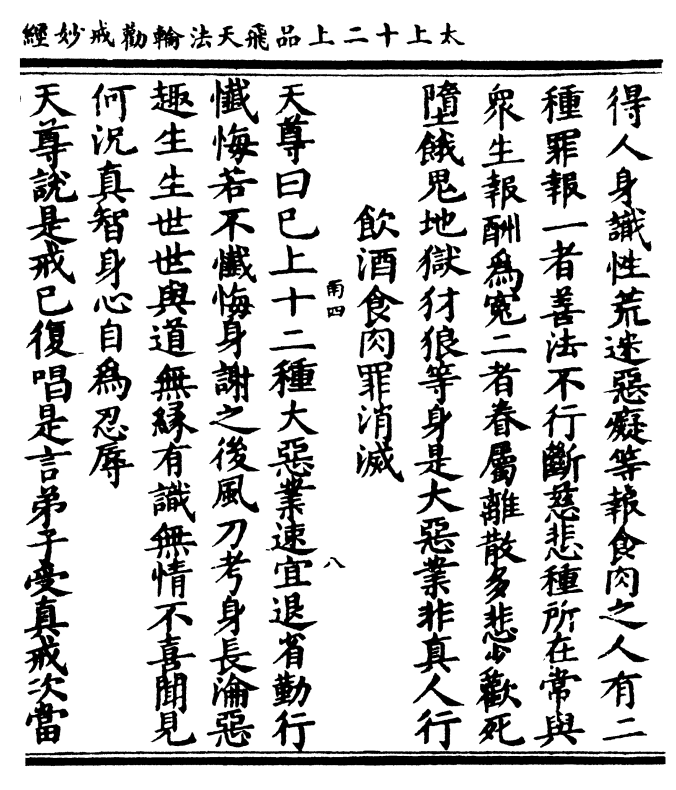 太上十二上品飛天法輪勸戒妙經
得人身識性荒迷惡癡等報食肉之人有二
種罪報一者善法不行斷慈悲種所在常與
衆生報酬爲寃二者眷屬離散多悲少歡死
墮餓鬼地獄犲狼等身是大惡業非真人行
飲酒食肉罪消滅
甬四
八
天尊曰巳上十二種大惡業速宜退省勤行
懺悔若不懺悔身謝之後風刀考身長淪惡
趣生生世世與道無緣有識無情不喜聞見
何況真智身心自爲忍辱
天尊說是戒巳復唱是言弟子受真戒次當